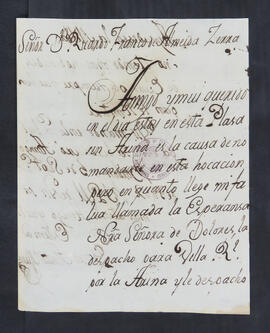 Señor Dn Ricardo Franco de Almeida Zerra
Amigo y muy querido
en el dia estoy en esta Plasa
sin Auna es la causa de no
mandarle en esta hocacion
pero en quanto llege mi fa
lua llamada la Esperansa
Nra Señora de Dolores, la
despacho para Villa Rl
por la Auna y le despacho